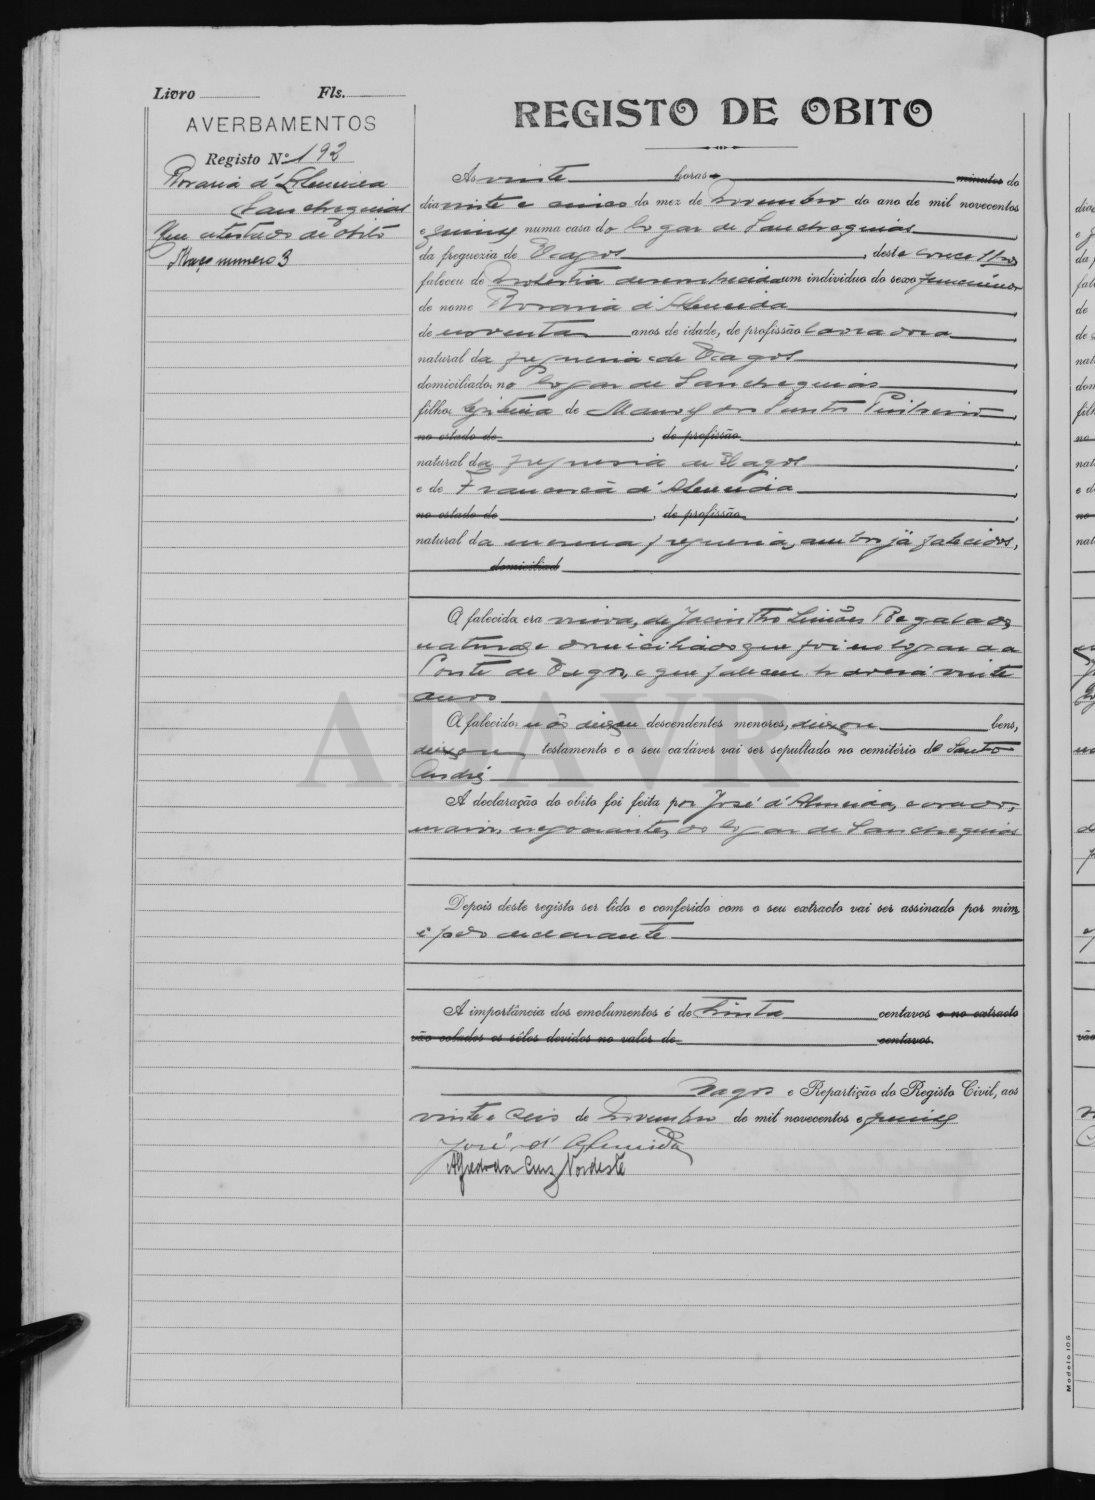 Livro Fls.
AVERBAMENTOS
Registo Nº 192
Rosaria d'Almeida
Sanchequias
Tem atestado de óbito
Maço numero 3
REGISTO DE OBITO
Ás vinte horas e minutos do
dia vinte e cinco do mez de Novembro do ano de mil novecentos
e quinze numa casa do logar de Sanchequias
da freguezia de Vagos, deste concelho
faleceu de molestia desconhecida um individuo do sexo femenino
de nome Rosaria d'Almeida
de noventa anos de idade, de profissão lavradora
natural da freguesia de Vagos
domiciliada no logar de Sanchequias
filha legitima de Manoel dos Santos
no estado de, de profissão
natural da freguesia de Vagos
e de Francisca d'Almeida
no estado de, de profissão
natural da mesma freguesia, ambos já falecidos,
domiciliad
A falecida era viuva, de Jacintho Simões Regalado,
natural e domiciliado que foi no logar da
Ponte de Vagos, e que faleceu haverá vinte
anos
A falecida não deixou descendentes menores, deixou bens,
deixou testamento e o seu cadáver vai ser sepultado no cemitério de Santo
André
A declaração do obito foi feita por José d'Almeida, casado,
maior, negociante, do logar de Sanchequias
Depois deste registo ser lido e conferido com o seu extracto vai ser assinado por mim,
e pelo declarante
A importância dos emolumentos é de trinta centavos e no extracto
vão colados os sêlos devidos no valor de centavos.
Vagos e Repartição do Registo Civil, aos
vinte e seis de Novembro de mil novecentos e quinze
José d'Almeida
Alfredo da Cruz Nordeste
ADAVR
Modelo 105